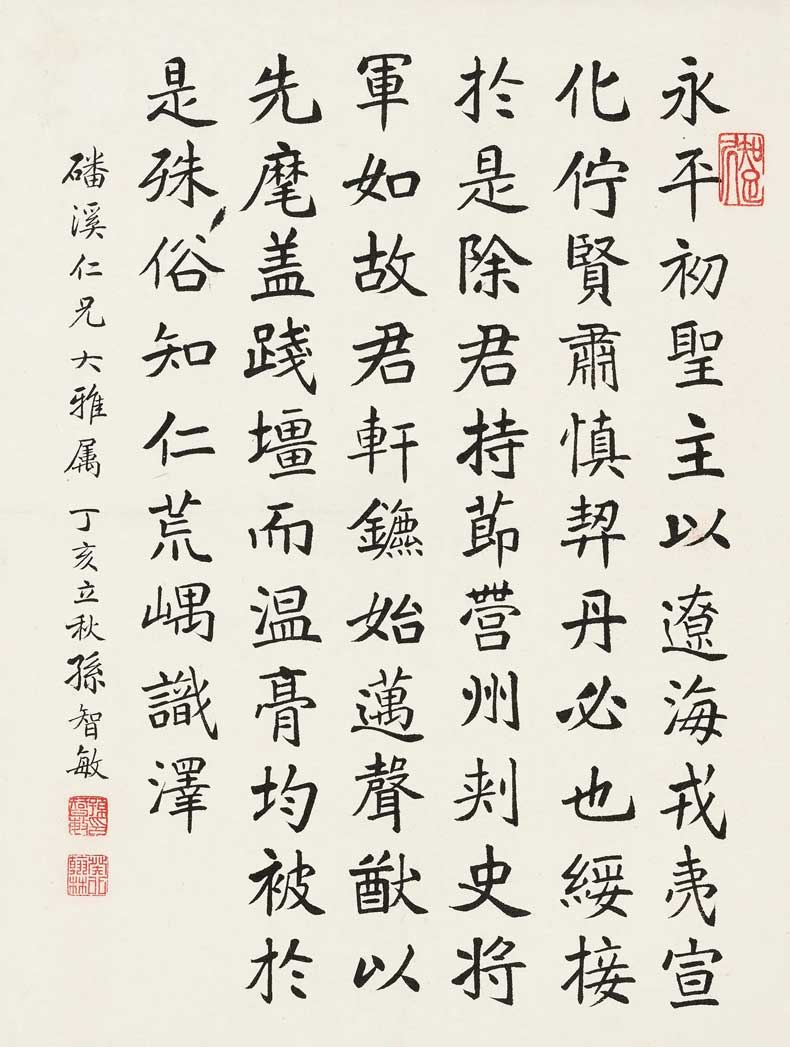 永平初聖主以遼海戎夷宣
化佇賢肅慎契丹必也綏接
於是除君持節營州刾史將
軍如故君軒鑣始邁聲猷以
先麾盖踐壃而温膏均被於
是殊俗知仁荒嵎識澤
磻溪仁兄大雅属 丁亥立秋孫智敏